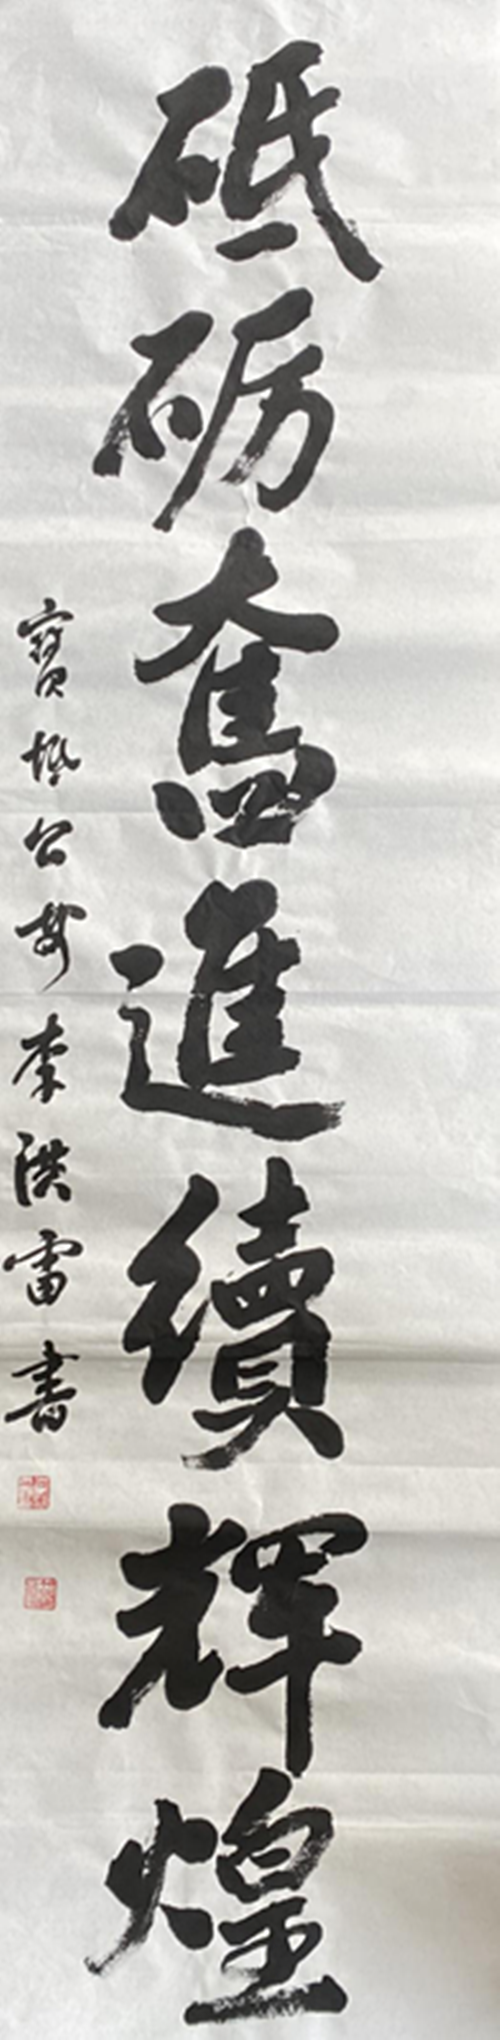 砥砺奮進續輝煌
寶坻公安李洪雷書